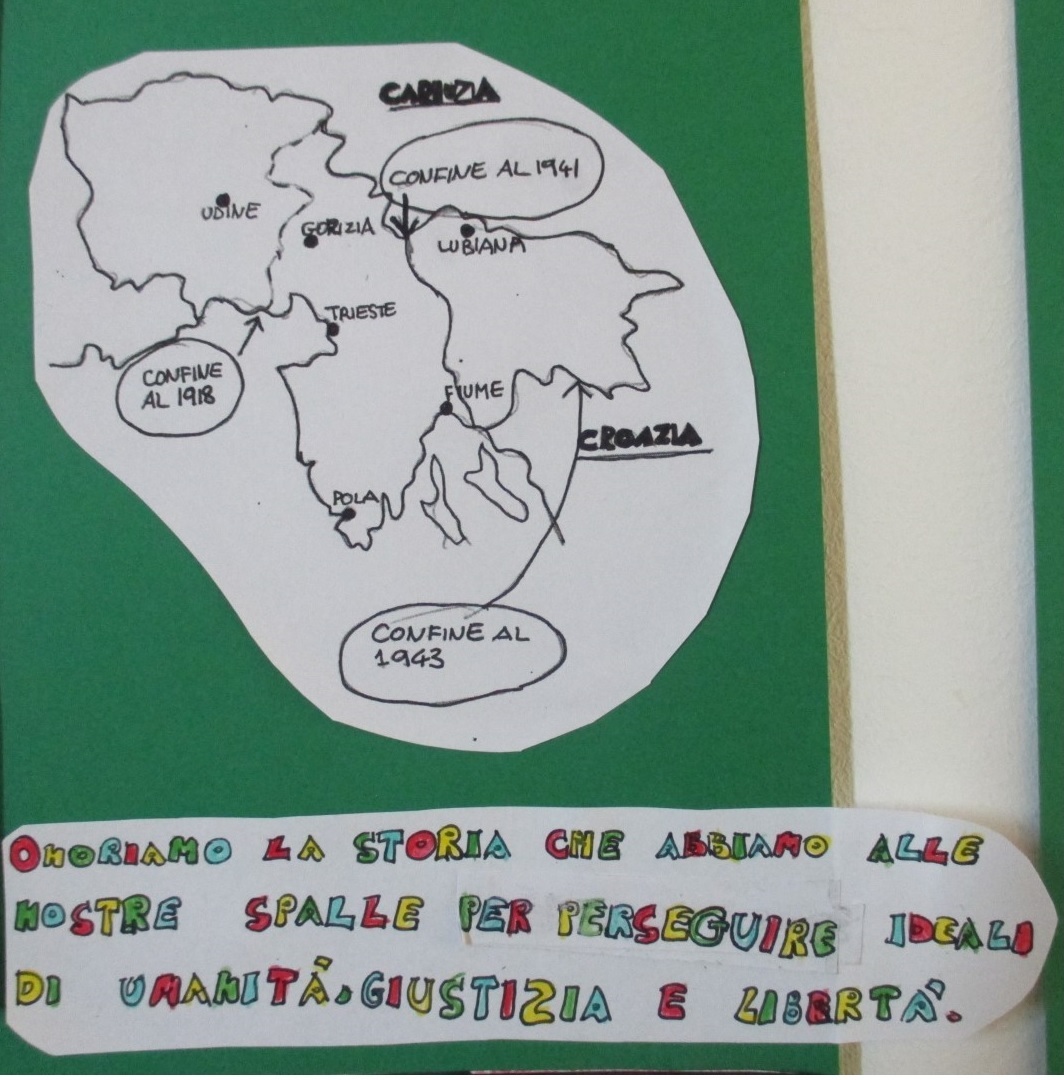 CARINZIA
CONFINE AL 1941
UDINE
GORIZIA
LUBIANA
TRIESTE
CONFINE
AL 1918
FIUME
CROAZIA
POLA
CONFINE AL
1943
ONORIAMO LA STORIA CHE ABBIAMO ALLE
NOSTRE SPALLE PER PERSEGUIRE IDEALI
DI UMANITÀ, GIUSTIZIA E LIBERTÀ.